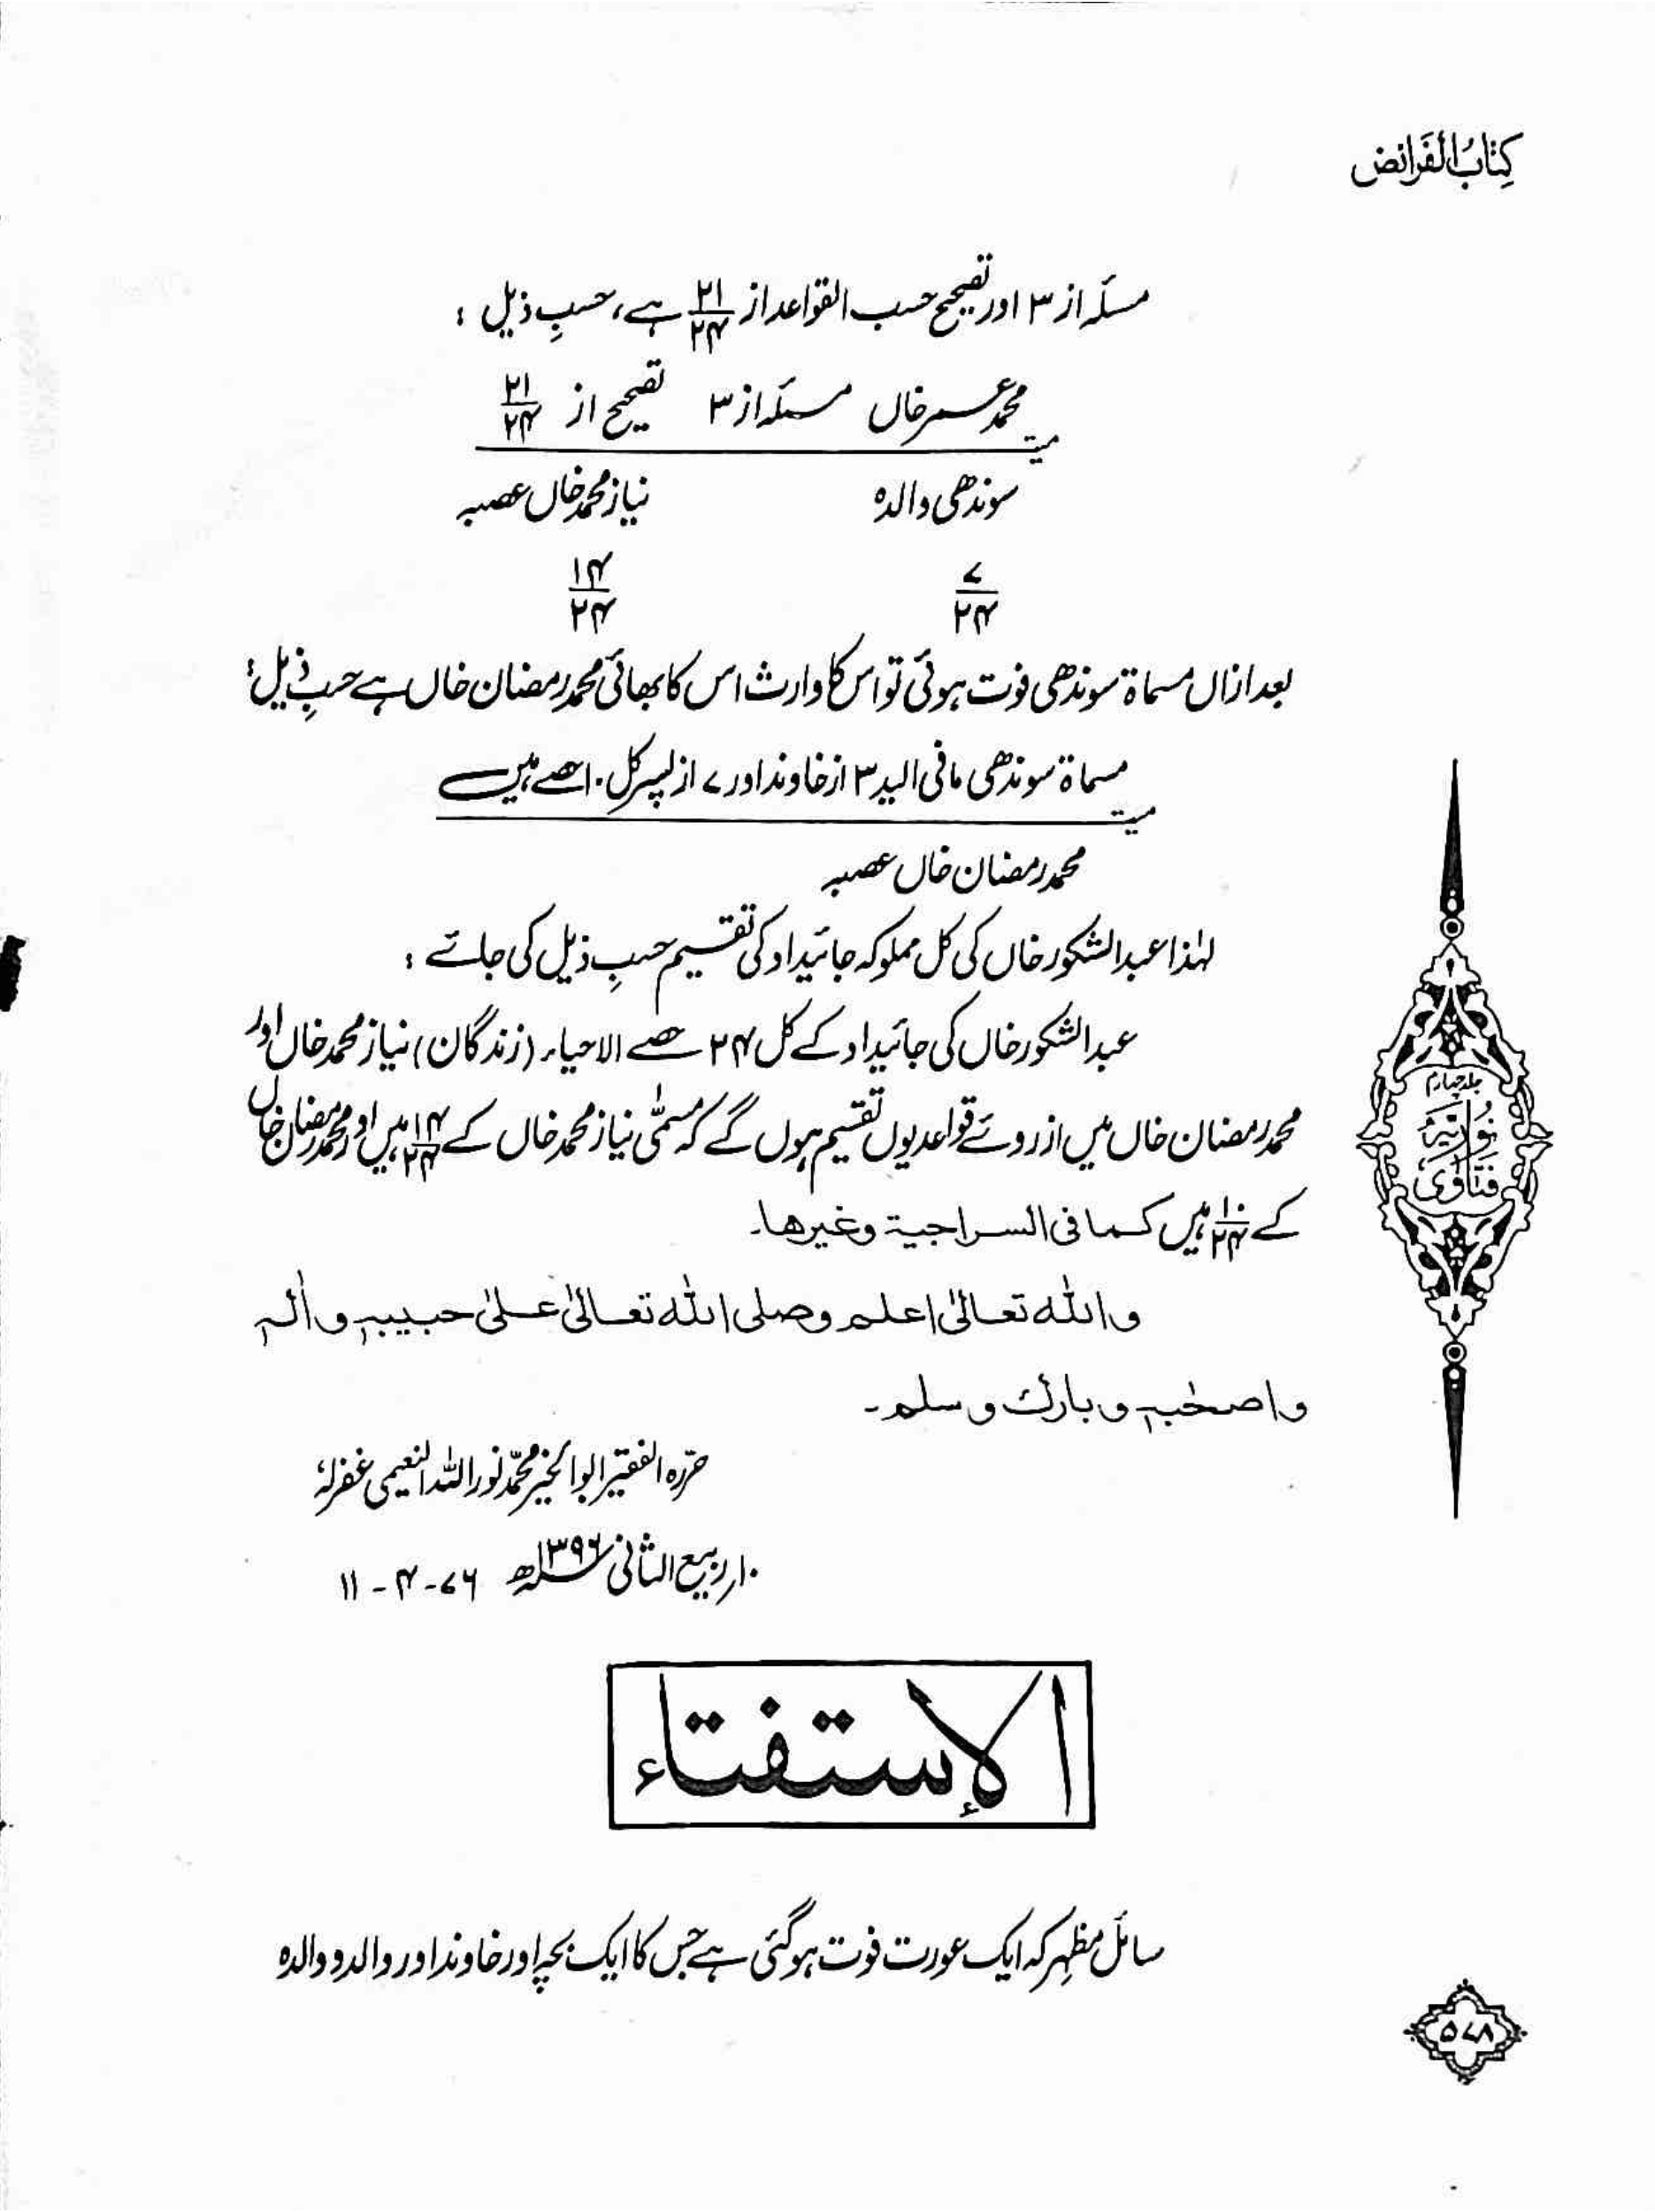 کِتَابُ الْفَرَائض
مسئلہ از ۳ اور تصحیح حسب القواعد از ۲۱/۲۴ ہے، حسبِ ذیل :
محمد عمر خاں مسئلہ از ۳ تصحیح از ۲۱/۲۴
میت
سوندھی والدہ نیاز محمد خاں عصبہ
۷/۲۴ ۱۴/۲۴
بعد ازاں مسماۃ سوندھی فوت ہوئی تو اس کا وارث اس کا بھائی محمد رمضان خاں ہے حسبِ ذیل :
مسماۃ سوندھی مافی الید ۳ از خاوند اور ۷ از پسر کل ۱۰ حصے ہیں
میت
محمد رمضان خاں عصبہ
لہٰذا عبدالشکور خاں کی کل مملوکہ جائیداد کی تقسیم حسبِ ذیل کی جائے :
عبدالشکور خاں کی جائیداد کے کل ۲۴ حصے الاحیاء (زندگان) نیاز محمد خاں اور
محمد رمضان خاں میں ازروئے قواعد یوں تقسیم ہوں گے کہ مسمّٰی نیاز محمد خاں کے ۱۴/۲۴ ہیں اور محمد رمضان خاں
کے ۱۰/۲۴ ہیں کما فی السراجیۃ وغیرھا۔
واللہ تعالیٰ اعلم وصلی اللہ تعالیٰ علیٰ حبیبہٖ واٰلہٖ
واصحٰبہٖ وبارک وسلم۔
حرّرہ الفقیر ابوالخیر محمّد نور اللہ النعیمی غفرلہٗ
۱۰ ربیع الثانی ۱۳۹۶ھ ۷۶-۴-۱۱
جلد چہارم
نُورِیَّہ
فَتَاوٰی
الإستفتاء
سائل مظہر کہ ایک عورت فوت ہوگئی ہے جس کا ایک بچہ اور خاوند اور والد و والدہ
۵۷۸